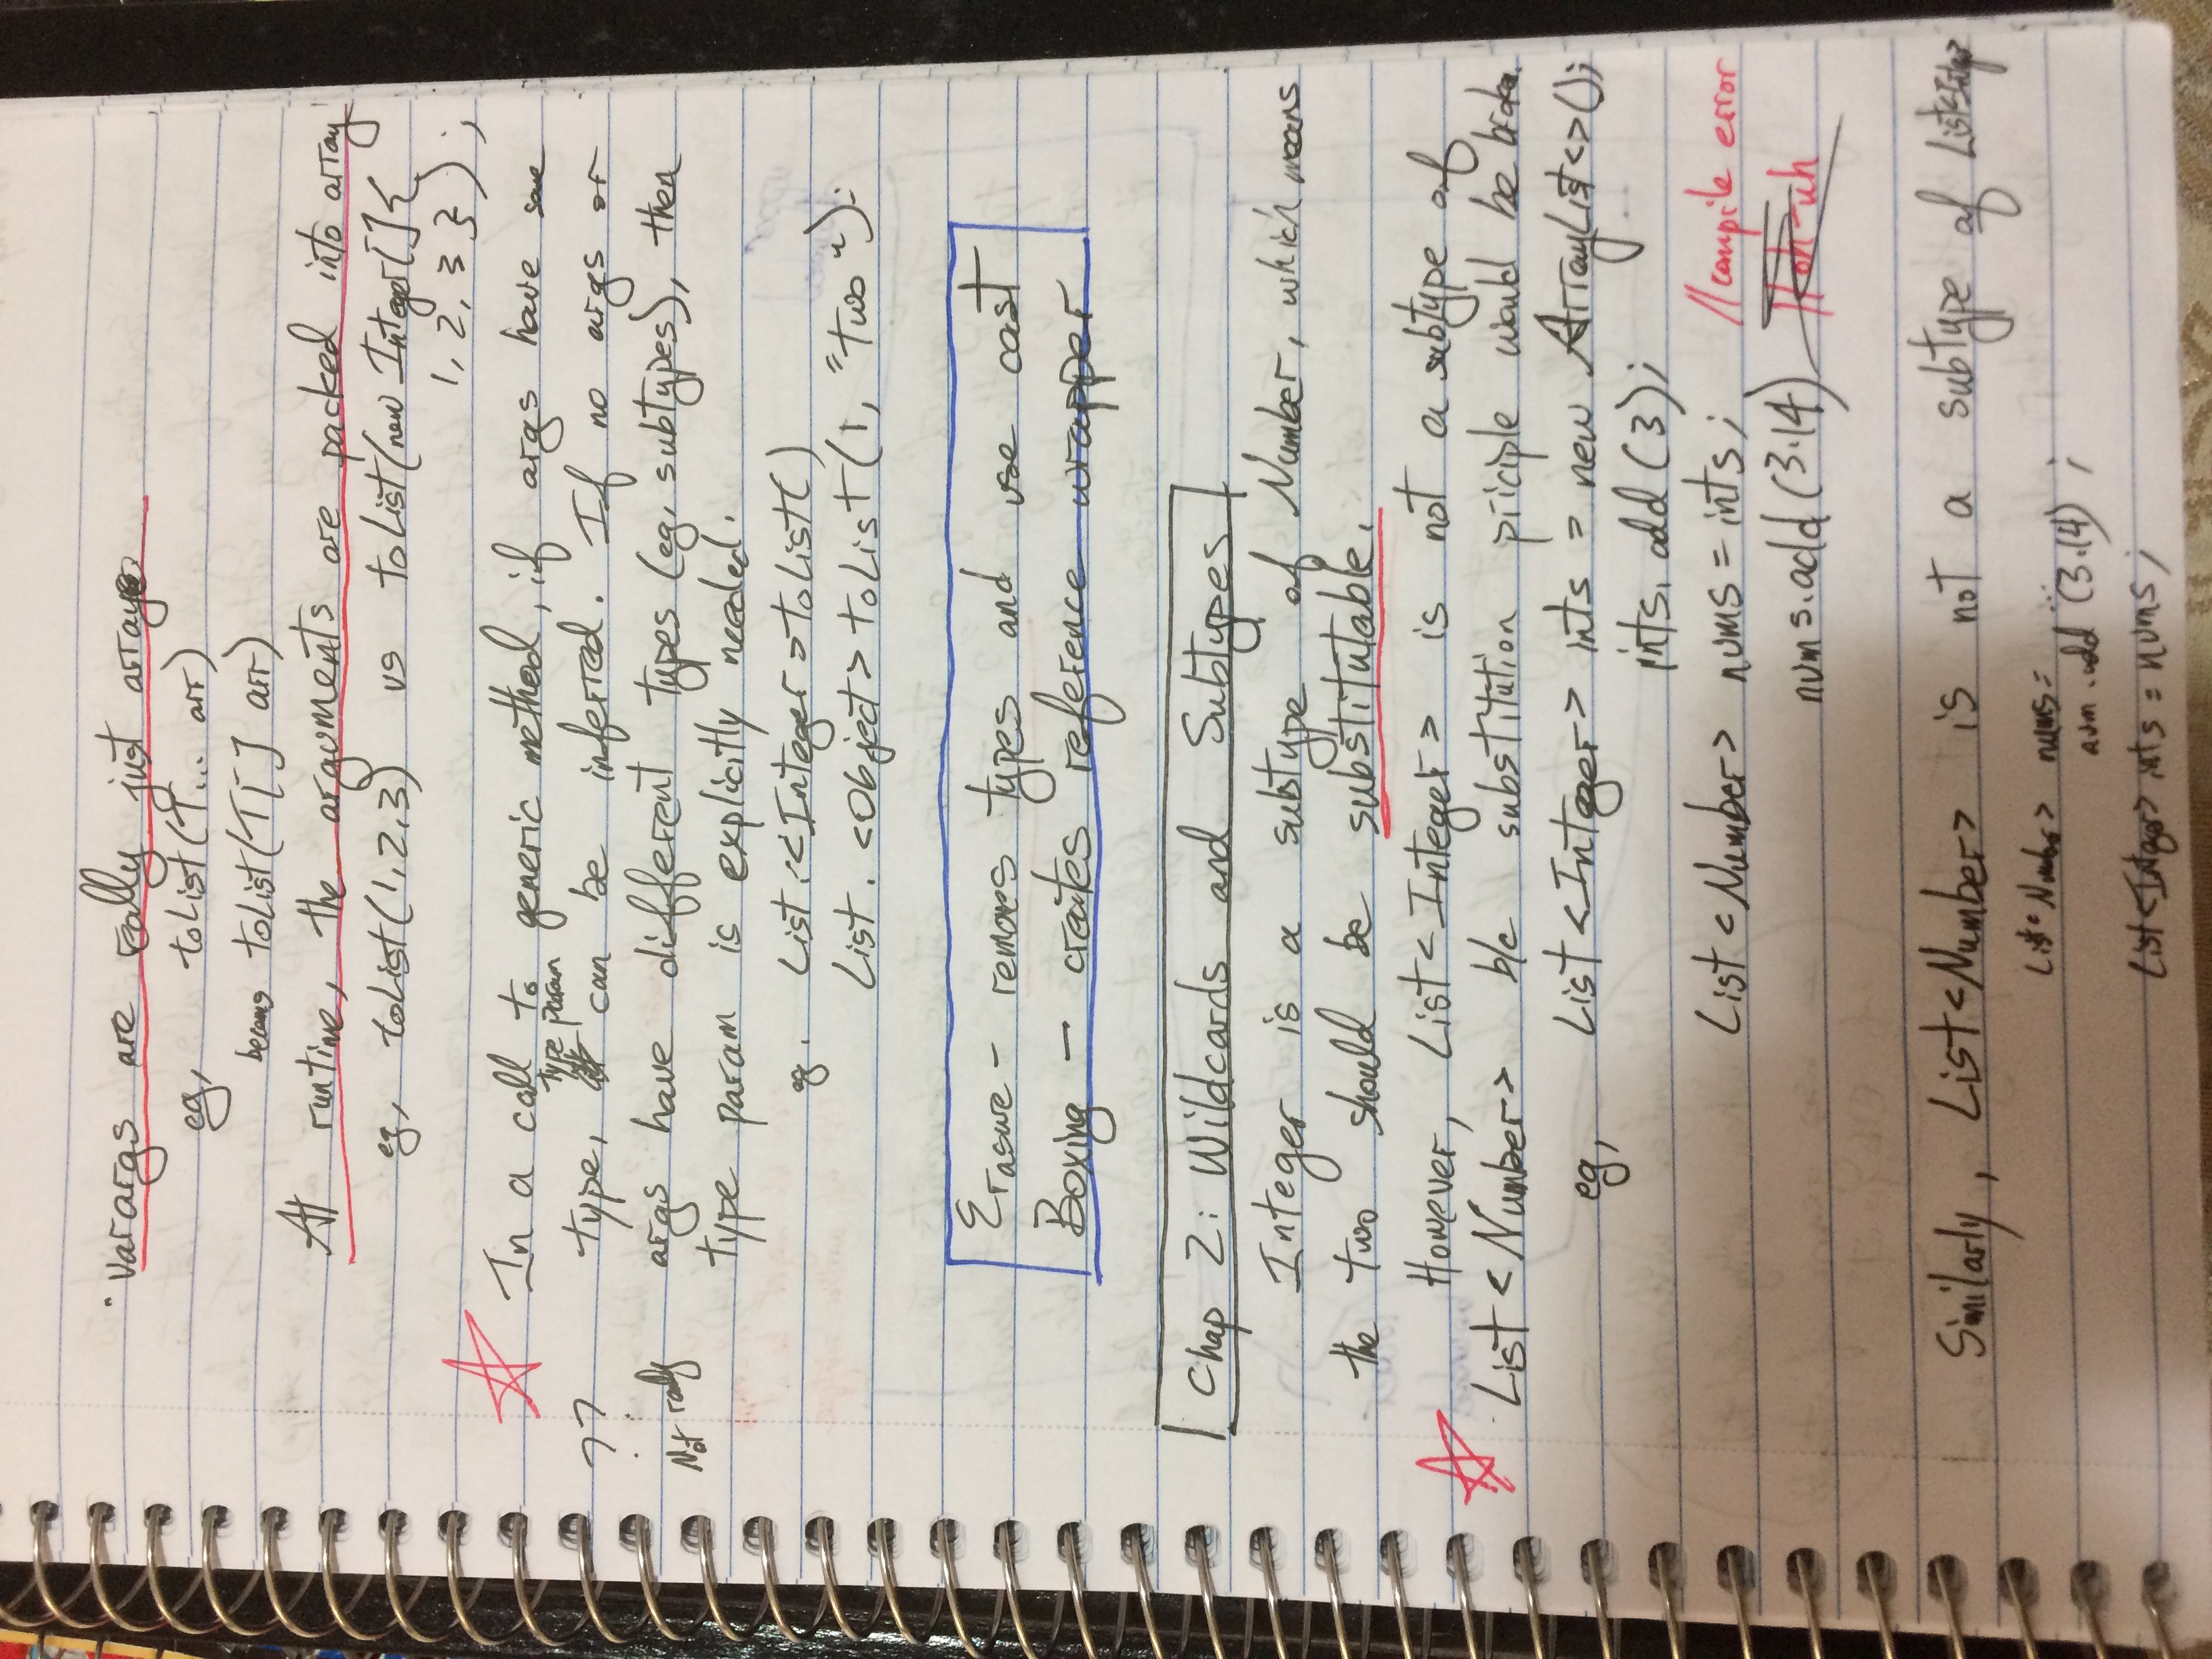 · varargs are really just arrays
eg, toList(T... arr)
becomes toList(T[] arr)
At runtime, the arguments are packed into array!
eg, toList(1,2,3) vs toList(new Integer[]{
1, 2, 3 });
In a call to generic method, if args have same
type param
?? type, can be inferred. If no args or
Not really args have different types (eg, subtypes), then
type param is explicitly needed.
eg. List.<Integer>toList()
List.<Object>toList(1, "two");
Erasure - removes types and use cast
Boxing - creates reference wrapper
Chap 2: Wildcards and Subtypes
Integer is a subtype of Number, which means
the two should be substitutable.
However, List<Integer> is not a subtype of
List<Number> b/c substitution priciple would be broken.
eg, List<Integer> ints = new ArrayList<>();
ints.add(3);
List<Number> nums = ints; //compile error
nums.add(3.14) //oh-uh
Similarly, List<Number> is not a subtype of List<Integer>
List<Number> nums = ...
num.add(3.14);
List<Integer> ints = nums;